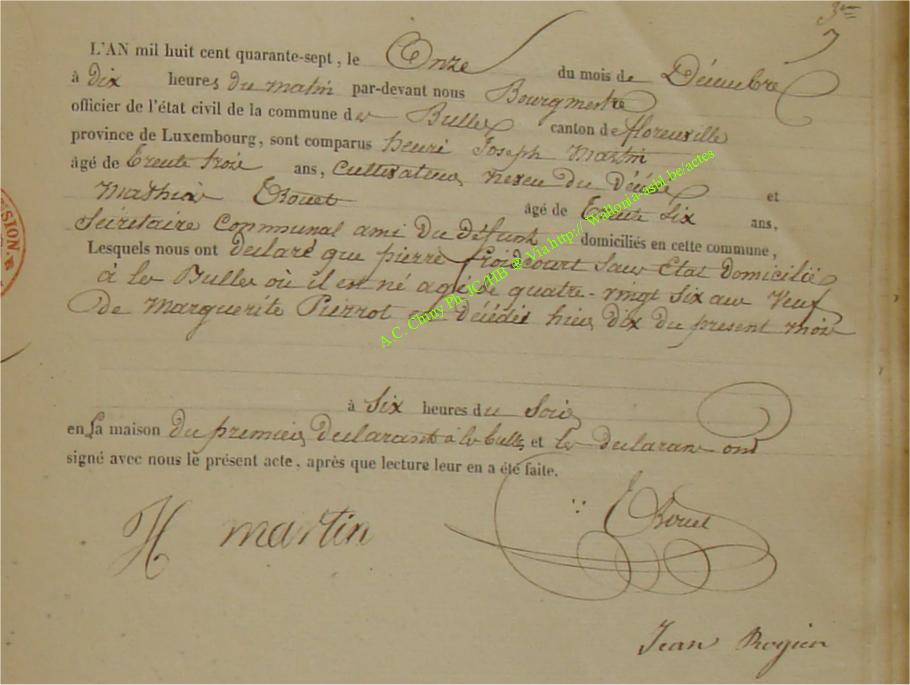 3me
7
L'AN mil huit cent quarante-sept, le Onze du mois de Décembre
à dix heures du matin par-devant nous Bourgmestre
officier de l'état civil de la commune des Bulles canton de florenville
province de Luxembourg, sont comparus henri Joseph Martin
âgé de Trente trois ans, Cultivateur neveu du Décédé et
Mathieu Rouet âgé de Trente Six ans,
Sécrétaire Communal ami du défunt domiciliés en cette commune,
Lesquels nous ont declaré que pierre froidcourt Sans Etat domicilié
à les Bulles où il est né agé de quatre-vingt six ans Veuf
de Marguerite Pierrot est décédé hier dix du present mois
à Six heures du Soir
en sa maison du premier declarant à les bulles, et les declarans ont
signé avec nous le présent acte, après que lecture leur en a été faite.
H martin
Rouet
Jean
A.C. Chiny Ph. JC/HB & Via http:// Wallonia-asbl.be/actes
SION